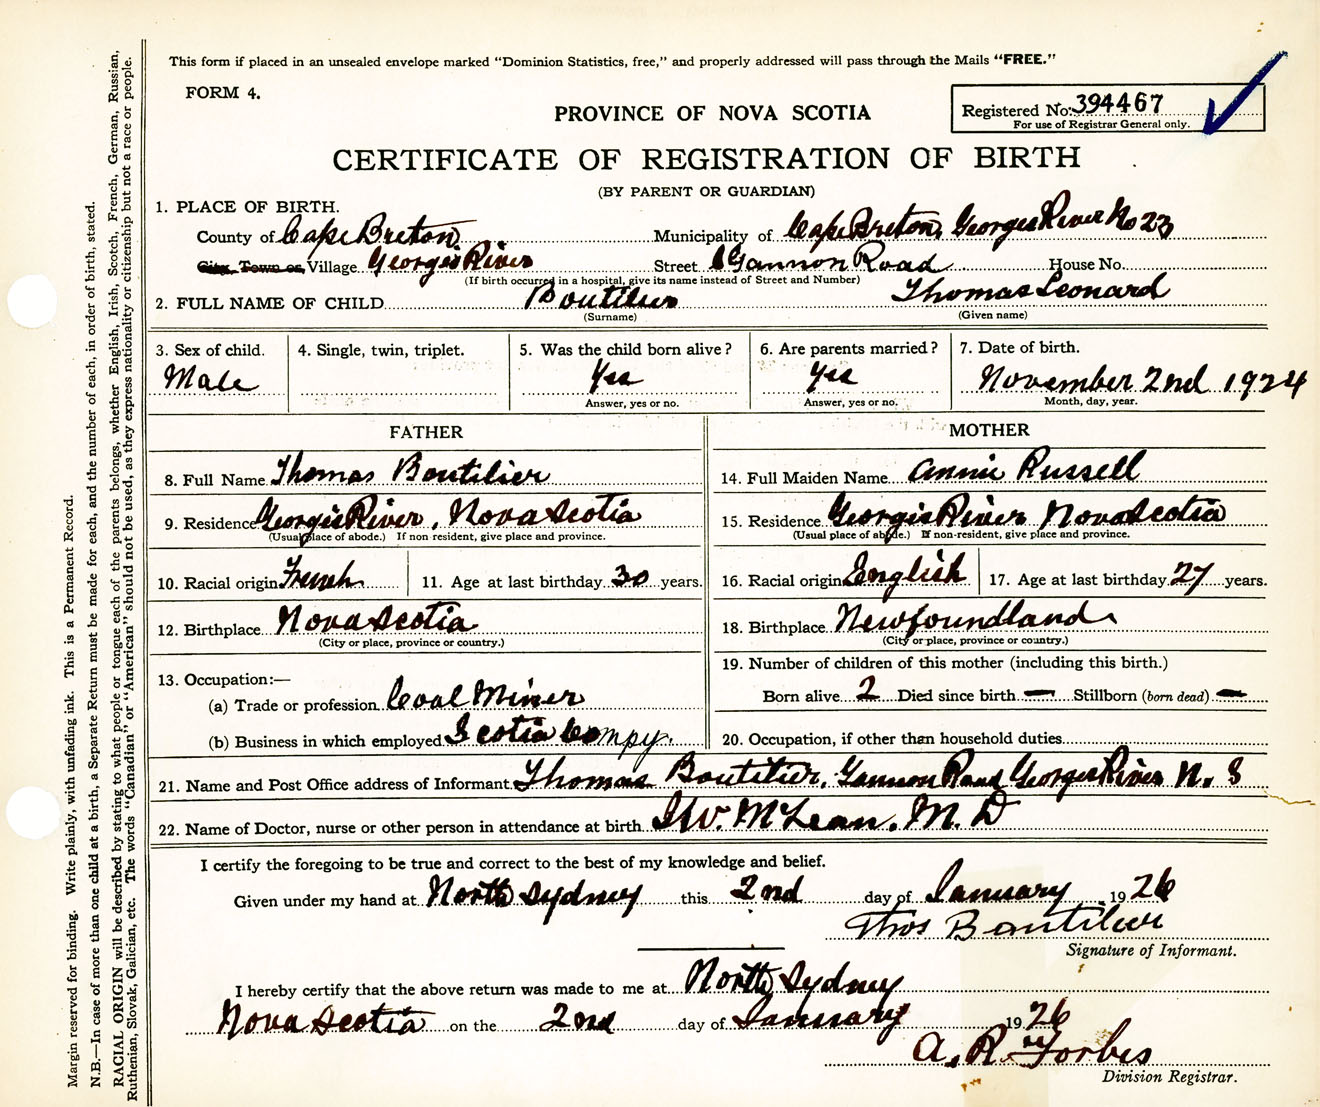 This form if placed in an unsealed envelope marked "Dominion Statistics, free," and properly addressed will pass through the Mails "FREE."
FORM 4.
PROVINCE OF NOVA SCOTIA
Registered No. 394467
For use of Registrar General only.
CERTIFICATE OF REGISTRATION OF BIRTH
(BY PARENT OR GUARDIAN)
1. PLACE OF BIRTH.
County of Cape Breton Municipality of Cape Breton, Georges River No 23
City, Town or Village Georges River Street Gannon Road House No.
(If birth occurred in a hospital, give its name instead of Street and Number)
2. FULL NAME OF CHILD Boutilier Thomas Leonard
(Surname) (Given name)
3. Sex of child. 4. Single, twin, triplet. 5. Was the child born alive? 6. Are parents married? 7. Date of birth.
Male Yes Yes November 2nd 1924
Answer, yes or no. Answer, yes or no. Month, day, year.
FATHER MOTHER
8. Full Name Thomas Boutilier 14. Full Maiden Name Annie Russell
9. Residence Georges River, Nova Scotia 15. Residence Georges River Nova Scotia
(Usual place of abode.) If non-resident, give place and province. (Usual place of abode.) If non-resident, give place and province.
10. Racial origin French 11. Age at last birthday 30 years. 16. Racial origin English 17. Age at last birthday 27 years.
12. Birthplace Nova Scotia 18. Birthplace Newfoundland
(City or place, province or country.) (City or place, province or country.)
19. Number of children of this mother (including this birth.)
13. Occupation:—
Born alive 2 Died since birth — Stillborn (born dead) —
(a) Trade or profession Coal Miner
(b) Business in which employed Scotia Compy. 20. Occupation, if other than household duties
21. Name and Post Office address of Informant Thomas Boutilier, Gannon Road Georges River N. S
22. Name of Doctor, nurse or other person in attendance at birth W. McLean. M. D
I certify the foregoing to be true and correct to the best of my knowledge and belief.
Given under my hand at North Sydney this 2nd day of January 1926
Thos Boutilier
Signature of Informant.
I hereby certify that the above return was made to me at North Sydney
Nova Scotia on the 2nd day of January 1926
A. R. Forbes
Division Registrar.
Margin reserved for binding. Write plainly, with unfading ink. This is a Permanent Record.
N.B.—In case of more than one child at a birth, a Separate Return must be made for each, and the number of each, in order of birth, stated.
RACIAL ORIGIN will be described by stating to what people or tongue each of the parents belongs, whether English, Irish, Scotch, French, German, Russian,
Ruthenian, Slovak, Galician, etc. The words "Canadian" or "American" should not be used, as they express nationality or citizenship but not a race or people.